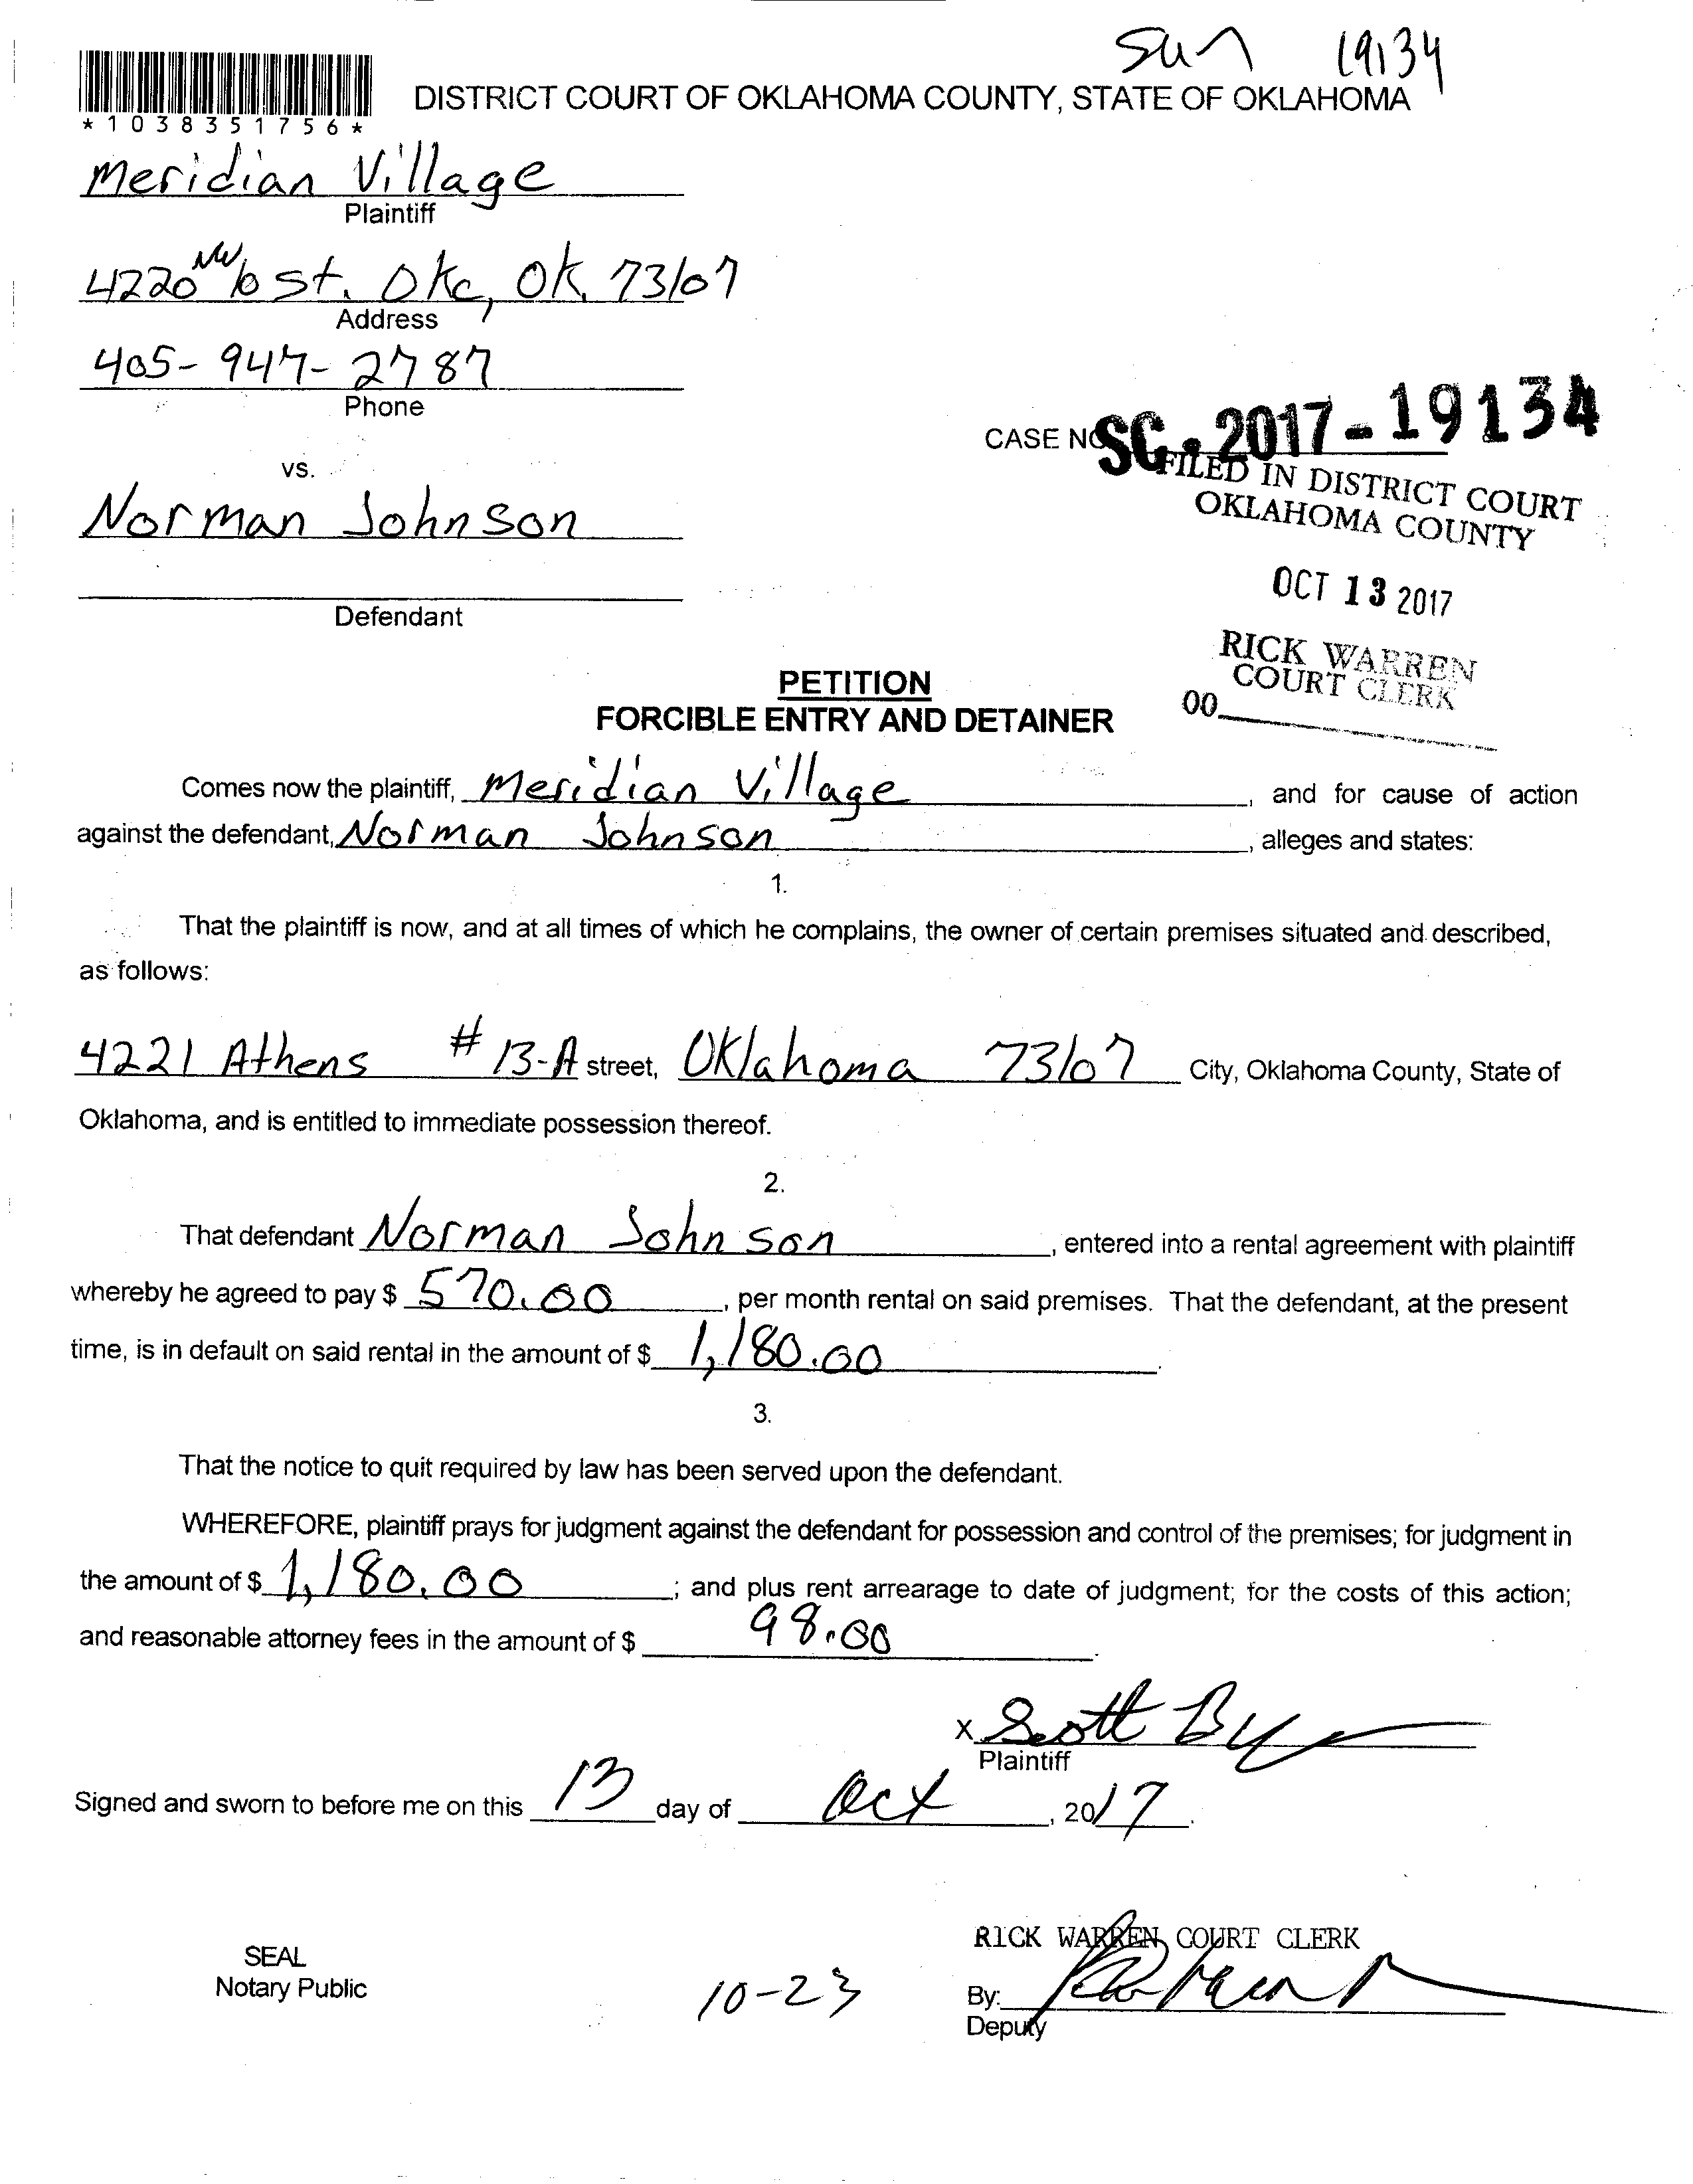 Sun 19134
*1038351756*
DISTRICT COURT OF OKLAHOMA COUNTY, STATE OF OKLAHOMA
Meridian Village
Plaintiff
4220 NW 10 St. Okc, OK. 73107
Address
405-947-2787
Phone
CASE NO SC-2017-19134
vs.
FILED IN DISTRICT COURT
OKLAHOMA COUNTY
Norman Johnson
OCT 13 2017
Defendant
RICK WARREN
COURT CLERK
00
PETITION
FORCIBLE ENTRY AND DETAINER
Comes now the plaintiff, Meridian Village, and for cause of action
against the defendant, Norman Johnson, alleges and states:
1.
That the plaintiff is now, and at all times of which he complains, the owner of certain premises situated and described,
as follows:
4221 Athens #13-A street, Oklahoma 73107 City, Oklahoma County, State of
Oklahoma, and is entitled to immediate possession thereof.
2.
That defendant Norman Johnson, entered into a rental agreement with plaintiff
whereby he agreed to pay $ 570.00, per month rental on said premises. That the defendant, at the present
time, is in default on said rental in the amount of $ 1,180.00.
3.
That the notice to quit required by law has been served upon the defendant.
WHEREFORE, plaintiff prays for judgment against the defendant for possession and control of the premises; for judgment in
the amount of $ 1,180.00; and plus rent arrearage to date of judgment; for the costs of this action;
and reasonable attorney fees in the amount of $ 98.00.
x Scott
Plaintiff
Signed and sworn to before me on this 13 day of Oct, 2017.
RICK WARREN, COURT CLERK
SEAL
Notary Public
10-23
By:
Deputy